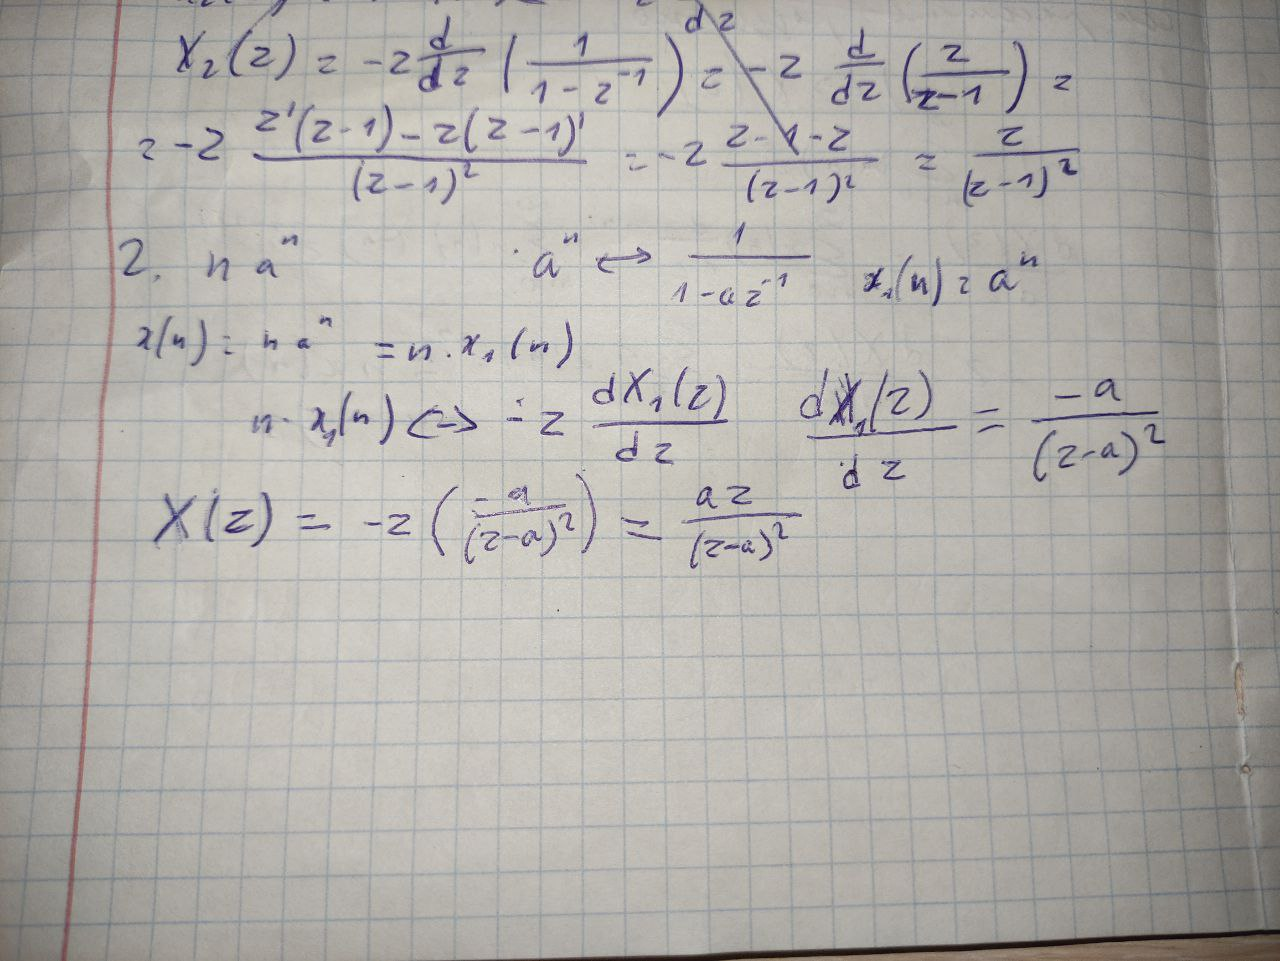 X₂(z) = -z d/dz (1/(1-z⁻¹)) = -z d/dz (z/(z-1)) =
= -z (z'(z-1)-z(z-1)')/(z-1)² = -z (z-1-z)/(z-1)² = z/(z-1)²
2. n aⁿ · aⁿ ↔ 1/(1-az⁻¹) x₁(n) = aⁿ
x(n) = n aⁿ = n·x₁(n)
n·x₁(n) ↔ -z dX₁(z)/dz dX₁(z)/dz = -a/(z-a)²
X(z) = -z (-a/(z-a)²) = az/(z-a)²